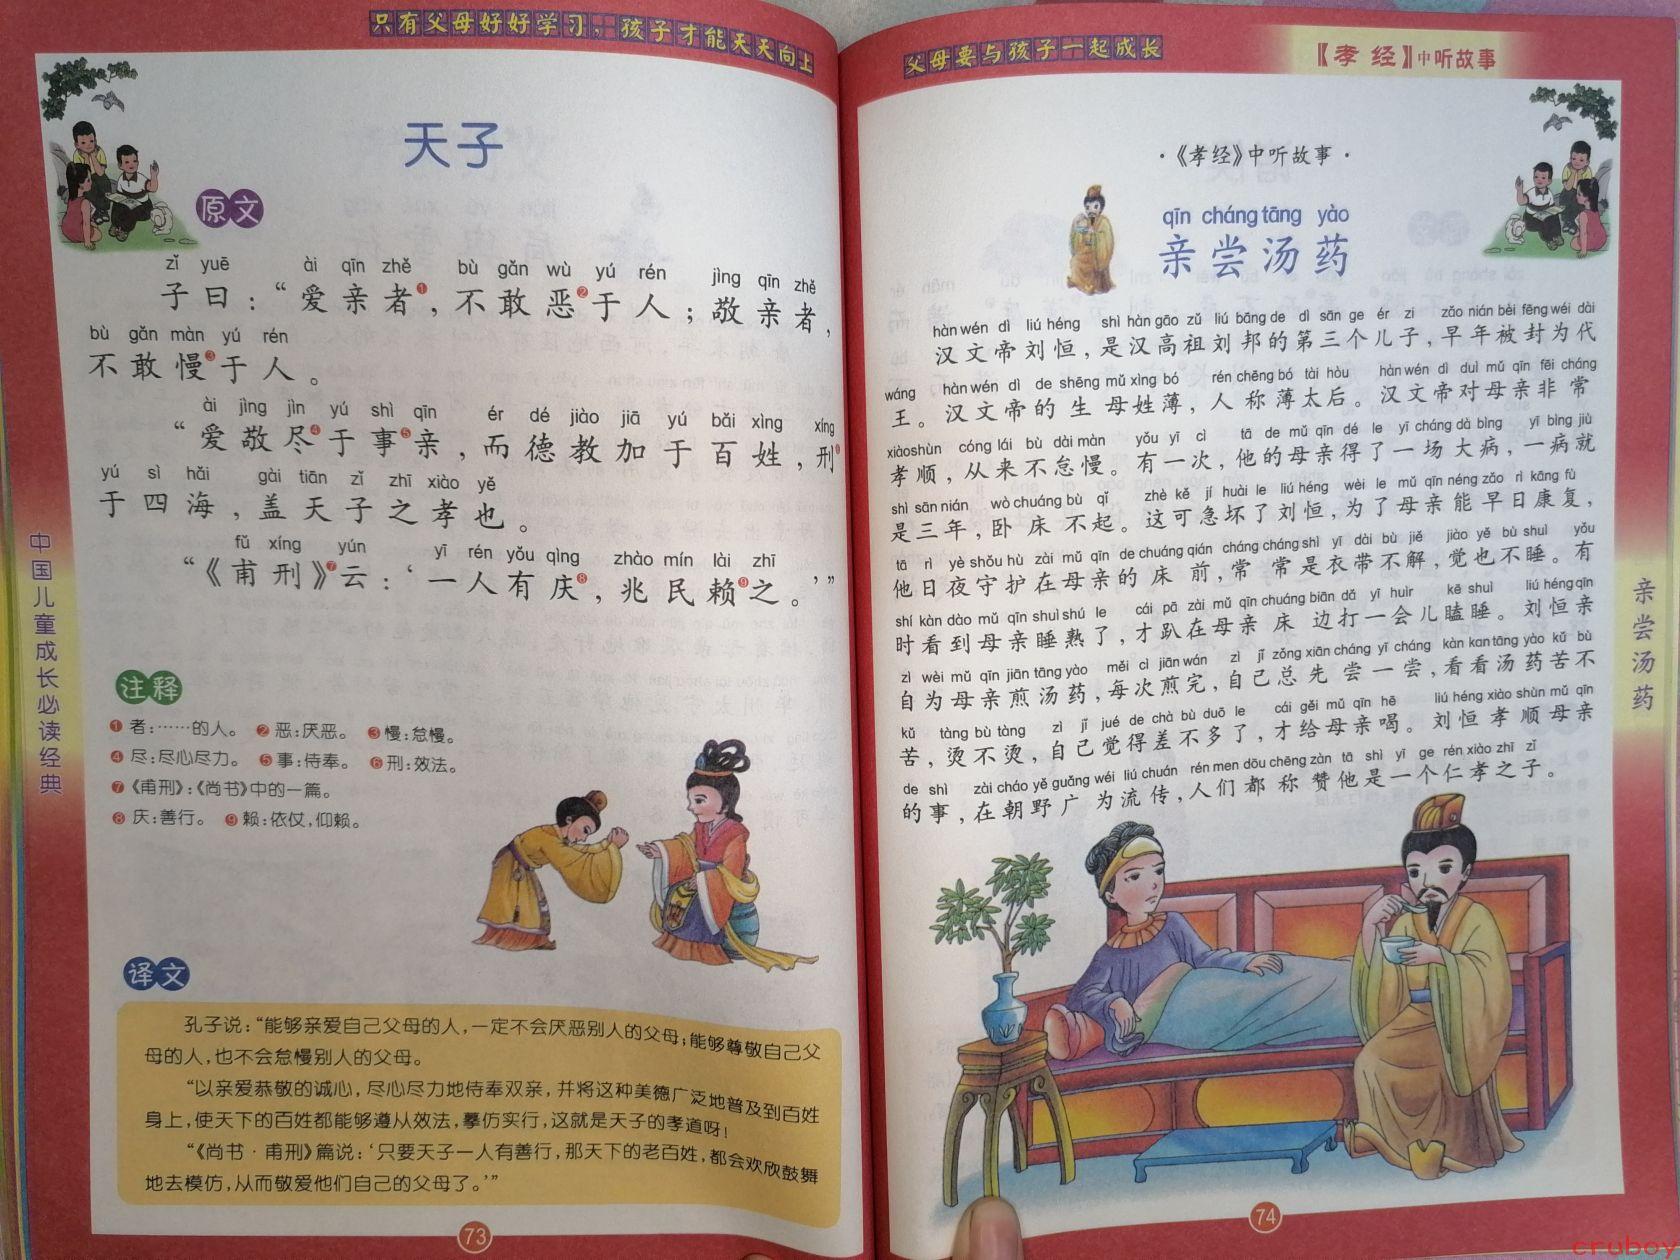 只有父母好好学习,孩子才能天天向上
天子
原文
zǐ yuē ài qīn zhě bù gǎn wù yú rén jìng qīn zhě
子曰:“爱亲者❶,不敢恶❷于人;敬亲者,
bù gǎn màn yú rén
不敢慢❸于人。
ài jìng jìn yú shì qīn ér dé jiào jiā yú bǎi xìng xíng
“爱敬尽❹于事❺亲,而德教加于百姓,刑❻
yú sì hǎi gài tiān zǐ zhī xiào yě
于四海,盖天子之孝也。
fǔ xíng yún yī rén yǒu qìng zhào mín lài zhī
“《甫刑》❼云:‘一人有庆❽,兆民赖❾之。’”
注释
❶者:……的人。 ❷恶:厌恶。 ❸慢:怠慢。
❹尽:尽心尽力。 ❺事:侍奉。 ❻刑:效法。
❼《甫刑》:《尚书》中的一篇。
❽庆:善行。 ❾赖:依仗,仰赖。
译文
孔子说:“能够亲爱自己父母的人,一定不会厌恶别人的父母;能够尊敬自己父
母的人,也不会怠慢别人的父母。
“以亲爱恭敬的诚心,尽心尽力地侍奉双亲,并将这种美德广泛地普及到百姓
身上,使天下的百姓都能够遵从效法,摹仿实行,这就是天子的孝道呀!
“《尚书·甫刑》篇说:‘只要天子一人有善行,那天下的老百姓,都会欢欣鼓舞
地去模仿,从而敬爱他们自己的父母了。’”
中国儿童成长必读经典
73
父母要与孩子一起成长
【孝经】中听故事
·《孝经》中听故事·
qīn cháng tāng yào
亲尝汤药
hàn wén dì liú héng shì hàn gāo zǔ liú bāng de dì sān ge ér zi zǎo nián bèi fēng wéi dài
汉文帝刘恒,是汉高祖刘邦的第三个儿子,早年被封为代
wáng hàn wén dì de shēng mǔ xìng bó rén chēng bó tài hòu hàn wén dì duì mǔ qīn fēi cháng
王。汉文帝的生母姓薄,人称薄太后。汉文帝对母亲非常
xiào shùn cóng lái bù dài màn yǒu yī cì tā de mǔ qīn dé le yī cháng dà bìng yī bìng jiù
孝顺,从来不怠慢。有一次,他的母亲得了一场大病,一病就
shì sān nián wò chuáng bù qǐ zhè kě jí huài le liú héng wèi le mǔ qīn néng zǎo rì kāng fù
是三年,卧床不起。这可急坏了刘恒,为了母亲能早日康复,
tā rì yè shǒu hù zài mǔ qīn de chuáng qián cháng cháng shì yī dài bù jiě jiào yě bù shuì yǒu
他日夜守护在母亲的床前,常常是衣带不解,觉也不睡。有
shí kàn dào mǔ qīn shuì shú le cái pā zài mǔ qīn chuáng biān dǎ yī huìr kē shuì liú héng qīn
时看到母亲睡熟了,才趴在母亲床边打一会儿瞌睡。刘恒亲
zì wèi mǔ qīn jiān tāng yào měi cì jiān wán zì jǐ zǒng xiān cháng yī cháng kàn kan tāng yào kǔ bù
自为母亲煎汤药,每次煎完,自己总先尝一尝,看看汤药苦不
kǔ tàng bù tàng zì jǐ jué de chà bù duō le cái gěi mǔ qīn hē liú héng xiào shùn mǔ qīn
苦,烫不烫,自己觉得差不多了,才给母亲喝。刘恒孝顺母亲
de shì zài cháo yě guǎng wéi liú chuán rén men dōu chēng zàn tā shì yī ge rén xiào zhī zǐ
的事,在朝野广为流传,人们都称赞他是一个仁孝之子。
亲尝汤药
74
cruboy